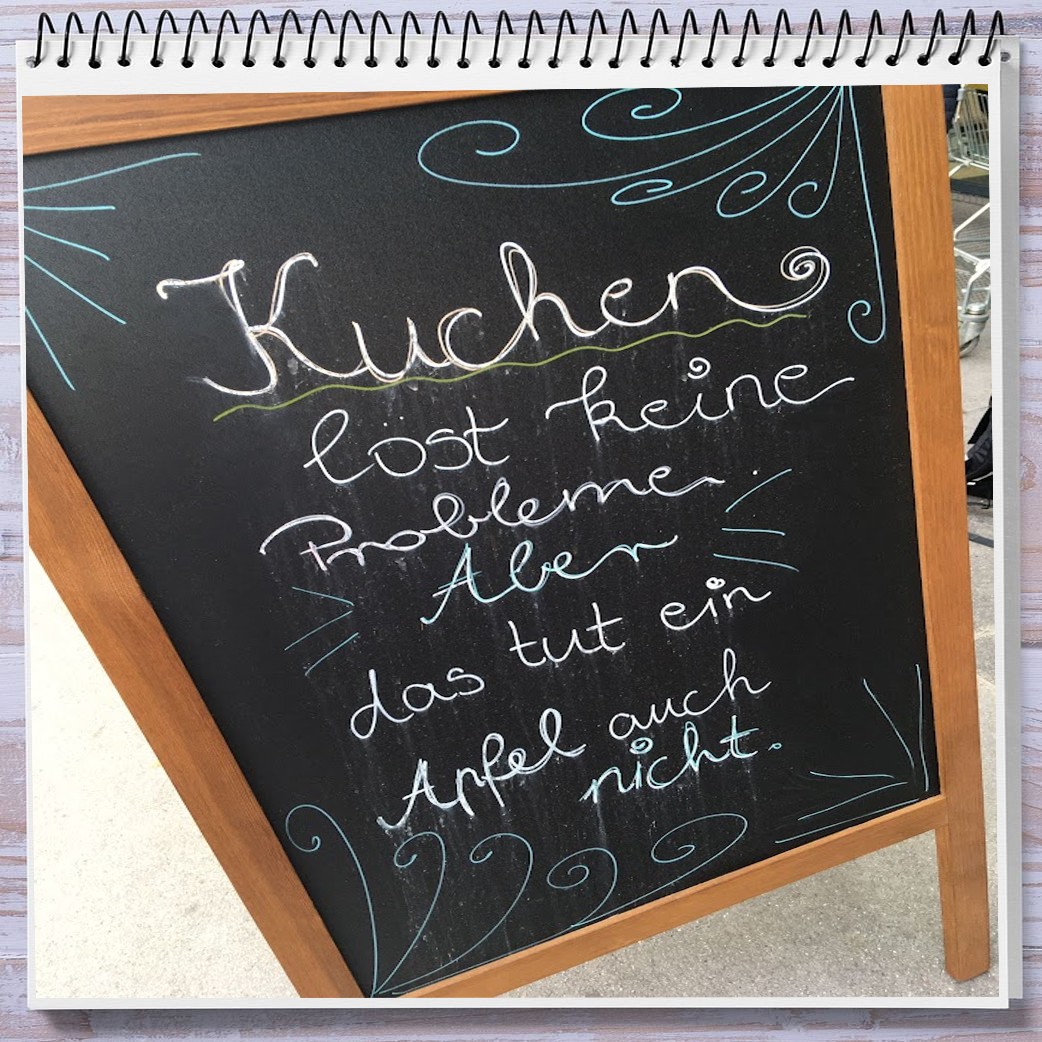 Kuchen
löst keine
Probleme.
Aber
das tut ein
Apfel auch
nicht.